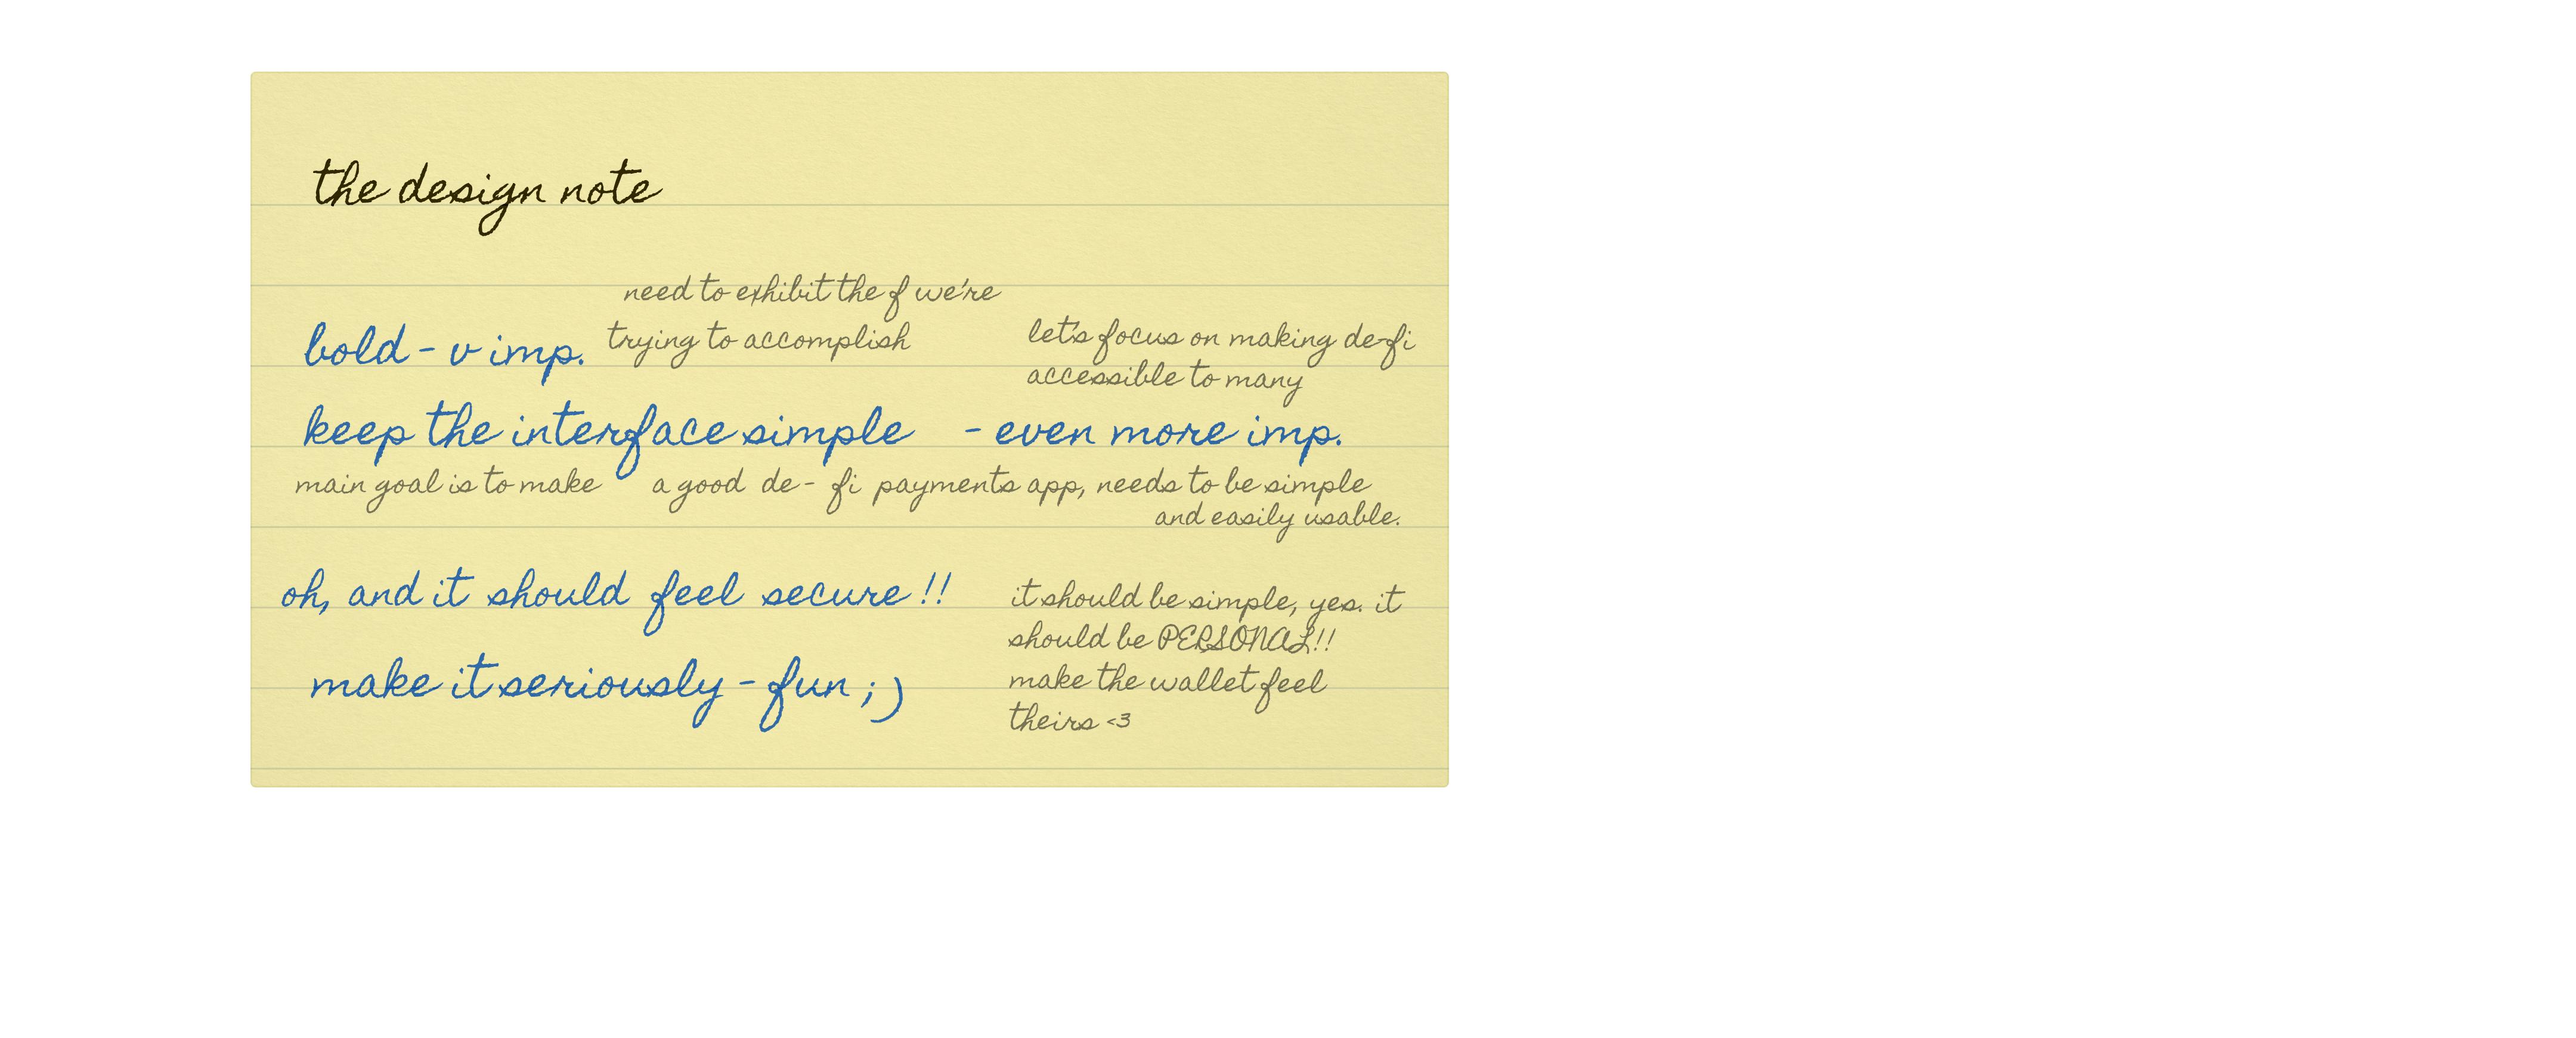 the design note
need to exhibit the f we're
trying to accomplish
bold - v imp.
let's focus on making de-fi
accessible to many
keep the interface simple - even more imp.
main goal is to make a good de - fi payments app, needs to be simple
and easily usable.
oh, and it should feel secure !!
it should be simple, yes. it
should be PERSONAL!!
make it seriously - fun ;)
make the wallet feel
theirs <3